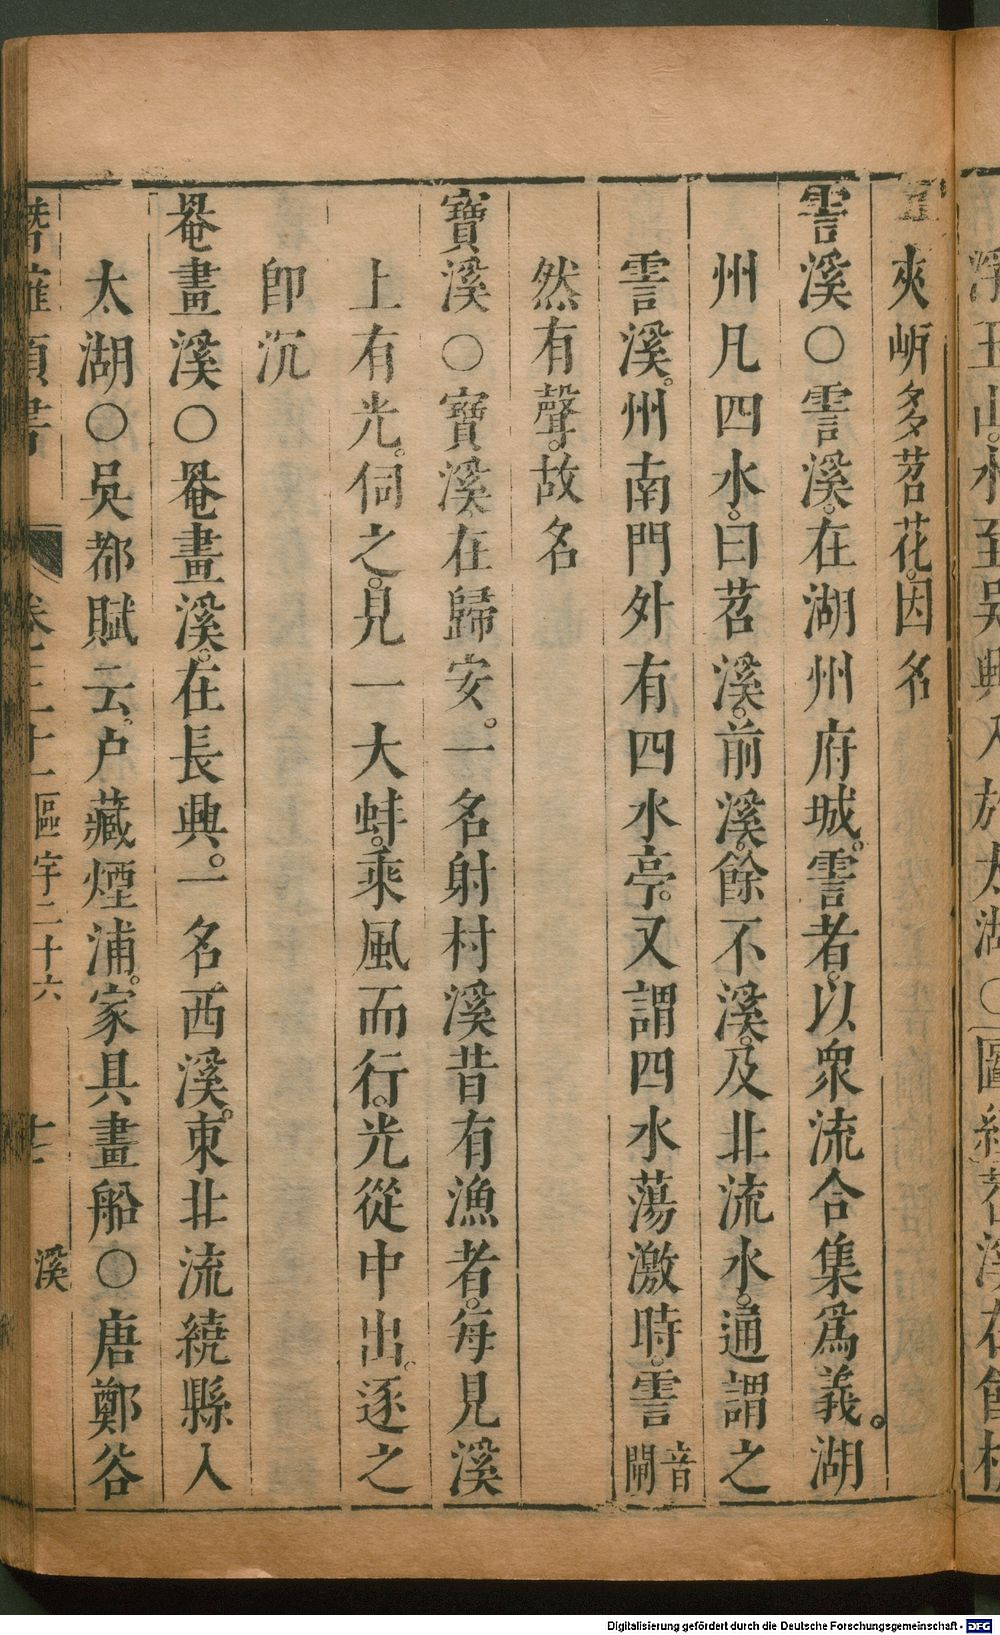 浮玉山。水至吳興入於太湖○圖經苕溪在
夾岍多苕花。因名
霅溪○霅溪。在湖州府城。霅者。以衆流合集爲義。湖
州凡四水。曰苕溪。前溪。餘不溪。及北流水。通謂之
霅溪。州南門外有四水亭。又謂四水蕩激時。霅音閘
然有聲。故名
寶溪○寶溪在歸安。一名射村溪昔有漁者。每見溪
上有光。伺之。見一大蚌。乘風而行。光從中出。逐之
卽沉
罨畫溪○罨畫溪。在長興。一名西溪。東北流繞縣入
太湖○吳都賦云。戶藏煙浦。家具畫船○唐鄭谷
潛確類書 卷之三十一 區宇二十六 溪
Digitalisierung gefördert durch die Deutsche Forschungsgemeinschaft - DFG